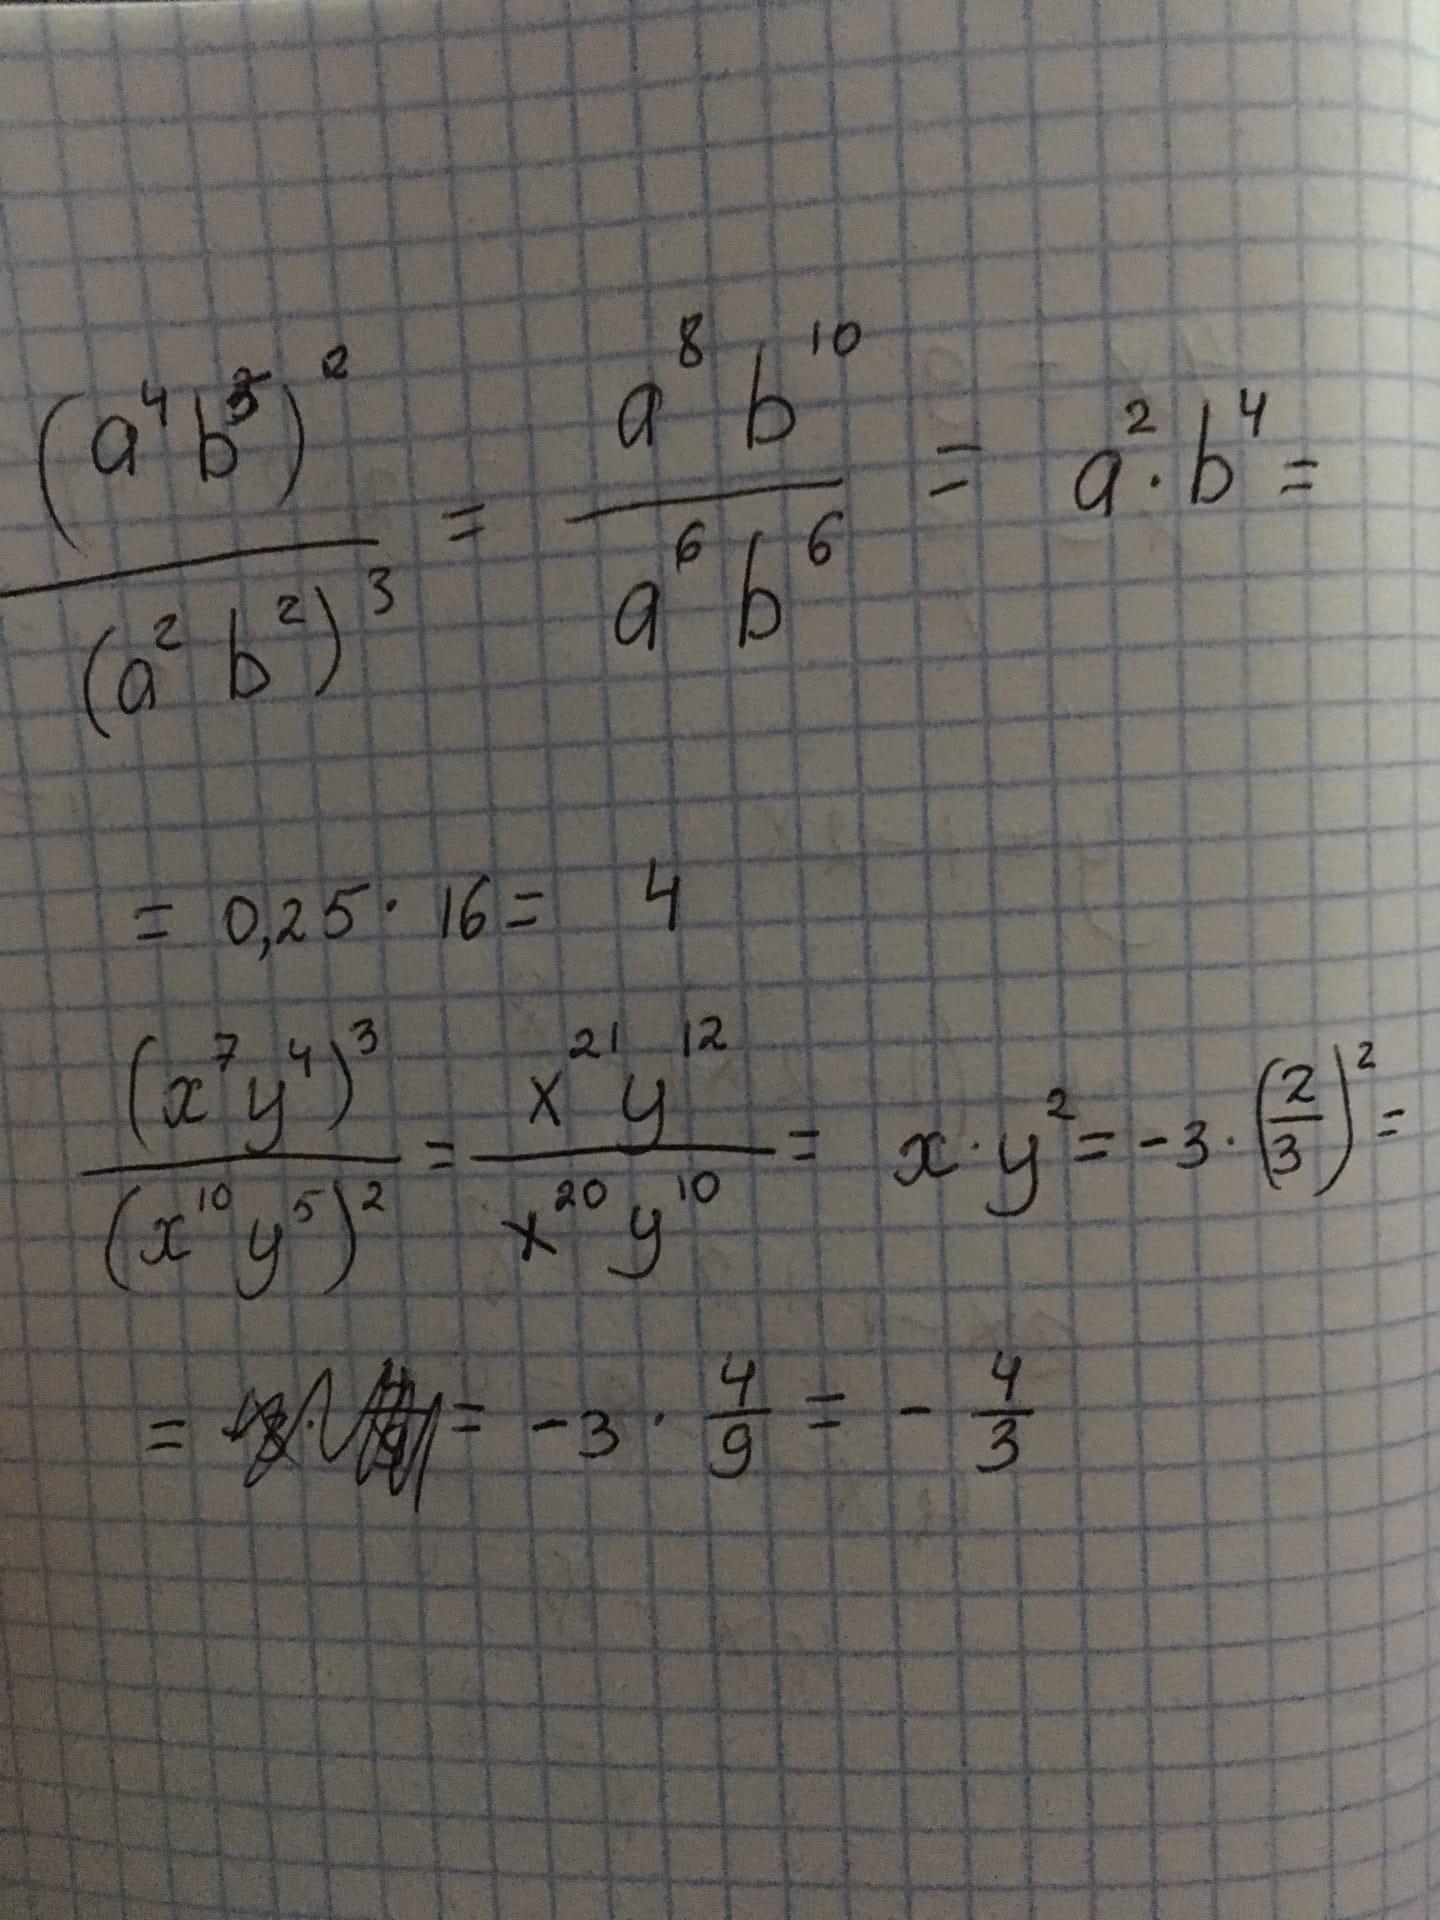 (a⁴b⁵)² / (a²b²)³ = a⁸b¹⁰ / a⁶b⁶ = a²·b⁴ =
= 0,25 · 16 = 4
(x⁷y⁴)³ / (x¹⁰y⁵)² = x²¹y¹² / x²⁰y¹⁰ = x·y² = -3·(2/3)² =
= = -3 · 4/9 = - 4/3